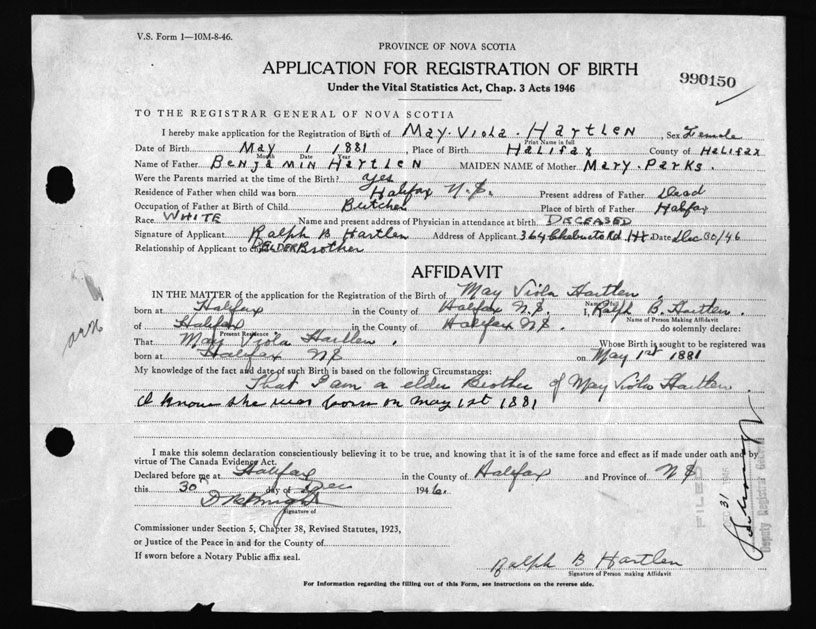 V.S. Form 1—10M-8-46.
PROVINCE OF NOVA SCOTIA
APPLICATION FOR REGISTRATION OF BIRTH
Under the Vital Statistics Act, Chap. 3 Acts 1946
990150
TO THE REGISTRAR GENERAL OF NOVA SCOTIA
I hereby make application for the Registration of Birth of May Viola Hartlen, Sex Female
Print Name in full
Date of Birth May 1 1881 Place of Birth Halifax County of Halifax
Month Date Year
Name of Father Benjamin Hartlen MAIDEN NAME of Mother Mary Parks.
Were the Parents married at time of the Birth? Yes
Residence of Father when child was born Halifax N.S. Present address of Father Dead
Occupation of Father at Birth of Child Butcher Place of birth of Father Halifax
Race WHITE Name and present address of Physician in attendance at birth DECEASED
Signature of Applicant Ralph B Hartlen Address of Applicant 364 Chebucto Rd. Hx Date Dec 30/46
Relationship of Applicant to child ELDER Brother
AFFIDAVIT
IN THE MATTER of the application for the Registration of Birth of May Viola Hartlen
born at Halifax in the County of Halifax N.S. I, Ralph B. Hartlen.
Name of Person Making Affidavit
of Halifax in the County of Halifax N.S. do solemnly declare:
Present Residence
That May Viola Hartlen, Whose Birth is sought to be registered was
born at Halifax NS on May 1st 1881
My knowledge of the fact and date of such Birth is based on the following Circumstances:
That I am a elder Brother of May Viola Hartlen.
I know she was born on May 1st 1881
I make this solemn declaration conscientiously believing it to be true, and knowing that it is of the same force and effect as if made under oath and by
virtue of The Canada Evidence Act.
Declared before me at Halifax in the County of Halifax and Province of N S
this 30 day of Dec 1946
Signature of
Commissioner under Section 5, Chapter 38, Revised Statutes, 1923,
or Justice of the Peace in and for the County of
If sworn before a Notary Public affix seal.
Ralph B Hartlen
Signature of Person making Affidavit
For Information regarding the filling out of this Form, see instructions on the reverse side.
FILED
31
Deputy Registrar General